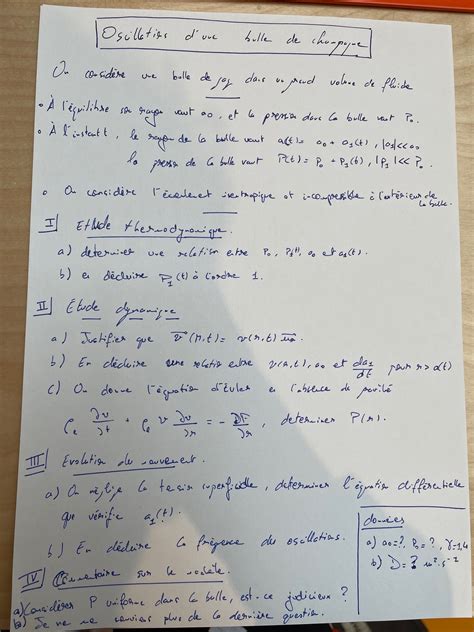 Oscillations d'une bulle de champagne
On considère une bulle de gaz dans un grand volume de fluide
• À l'équilibre son rayon vaut a0, et la pression dans la bulle vaut P0.
• À l'instant t, le rayon de la bulle vaut a(t) = a0 + a1(t), |a1| << a0
la pression de la bulle vaut P(t) = P0 + P1(t), |P1| << P0.
• On considère l'écoulement isentropique et incompressible à l'extérieur de
la bulle.
I Etude thermodynamique.
a) déterminer une relation entre P0, P(t), a0 et a1(t).
b) en déduire P1(t) à l'ordre 1.
II Étude dynamique
a) Justifier que v(r,t) = v(r,t) ur.
b) En déduire une relation entre v(r,t), a0 et da1/dt pour r > a(t)
c) On donne l'équation d'Euler en l'absence de gravité
ρe ∂v/∂t + ρe v ∂v/∂r = - ∂P/∂r, déterminer P(r).
III Evolution du mouvement.
a) On néglige la tension superficielle, déterminer l'équation différentielle
que vérifie a1(t).
b) En déduire la fréquence des oscillations.
IV Commentaire sur le modèle.
a) Considérer P uniforme dans la bulle, est-ce judicieux ?
b) Je ne me souviens plus de la dernière question.
données
a) a0 = ?, P0 = ?, γ = 1,4
b) D = ? m².s⁻¹